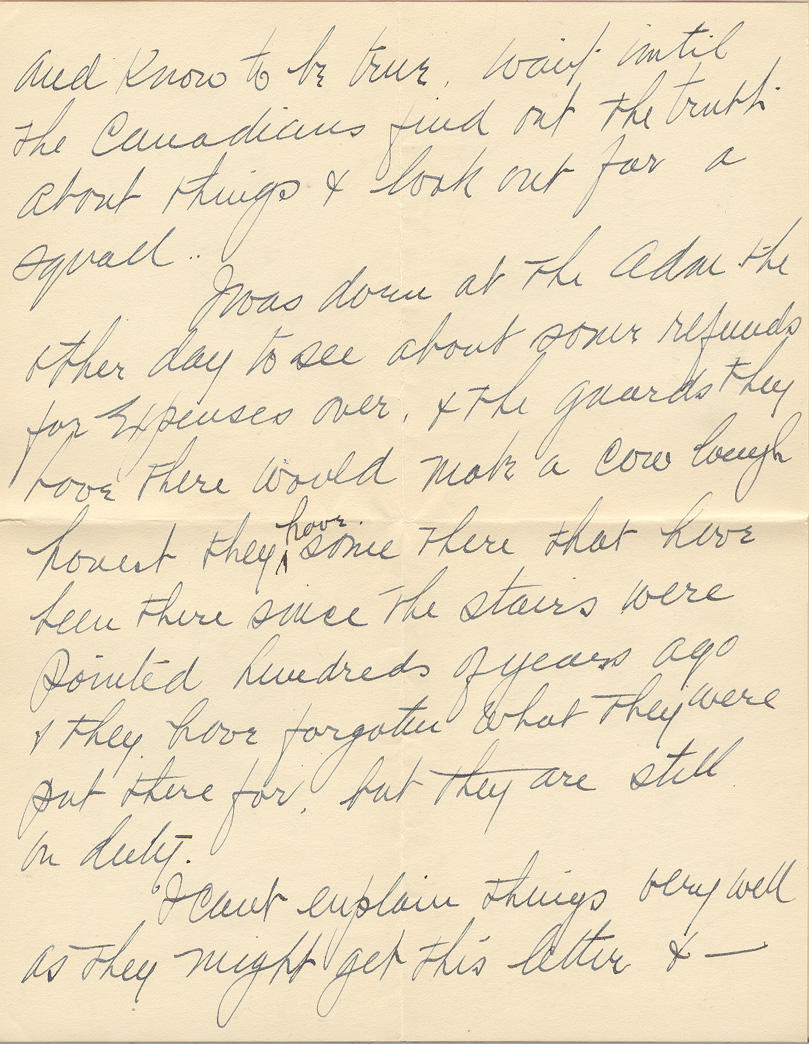 and know to be true. wait until
the Canadians find out the truth
about things & look out for a
squall ..
I was down at the Adm the
other day to see about some refunds
for Expenses over, & the guards they
have there would make a cow laugh
honest they have some there that have
been there since the stairs were
painted hundreds of years ago
& they have forgotten what they were
put there for, but they are still
on duty.
I cant explain things very well
as they might get this letter & —